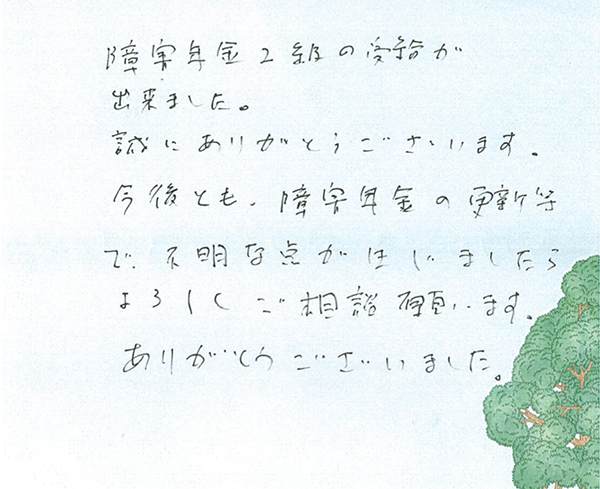 障害年金2級の受給が
出来ました。
誠にありがとうございます。
今後とも、障害年金の更新等
で、不明な点が生じましたら
よろしくご相談願います。
ありがとうございました。